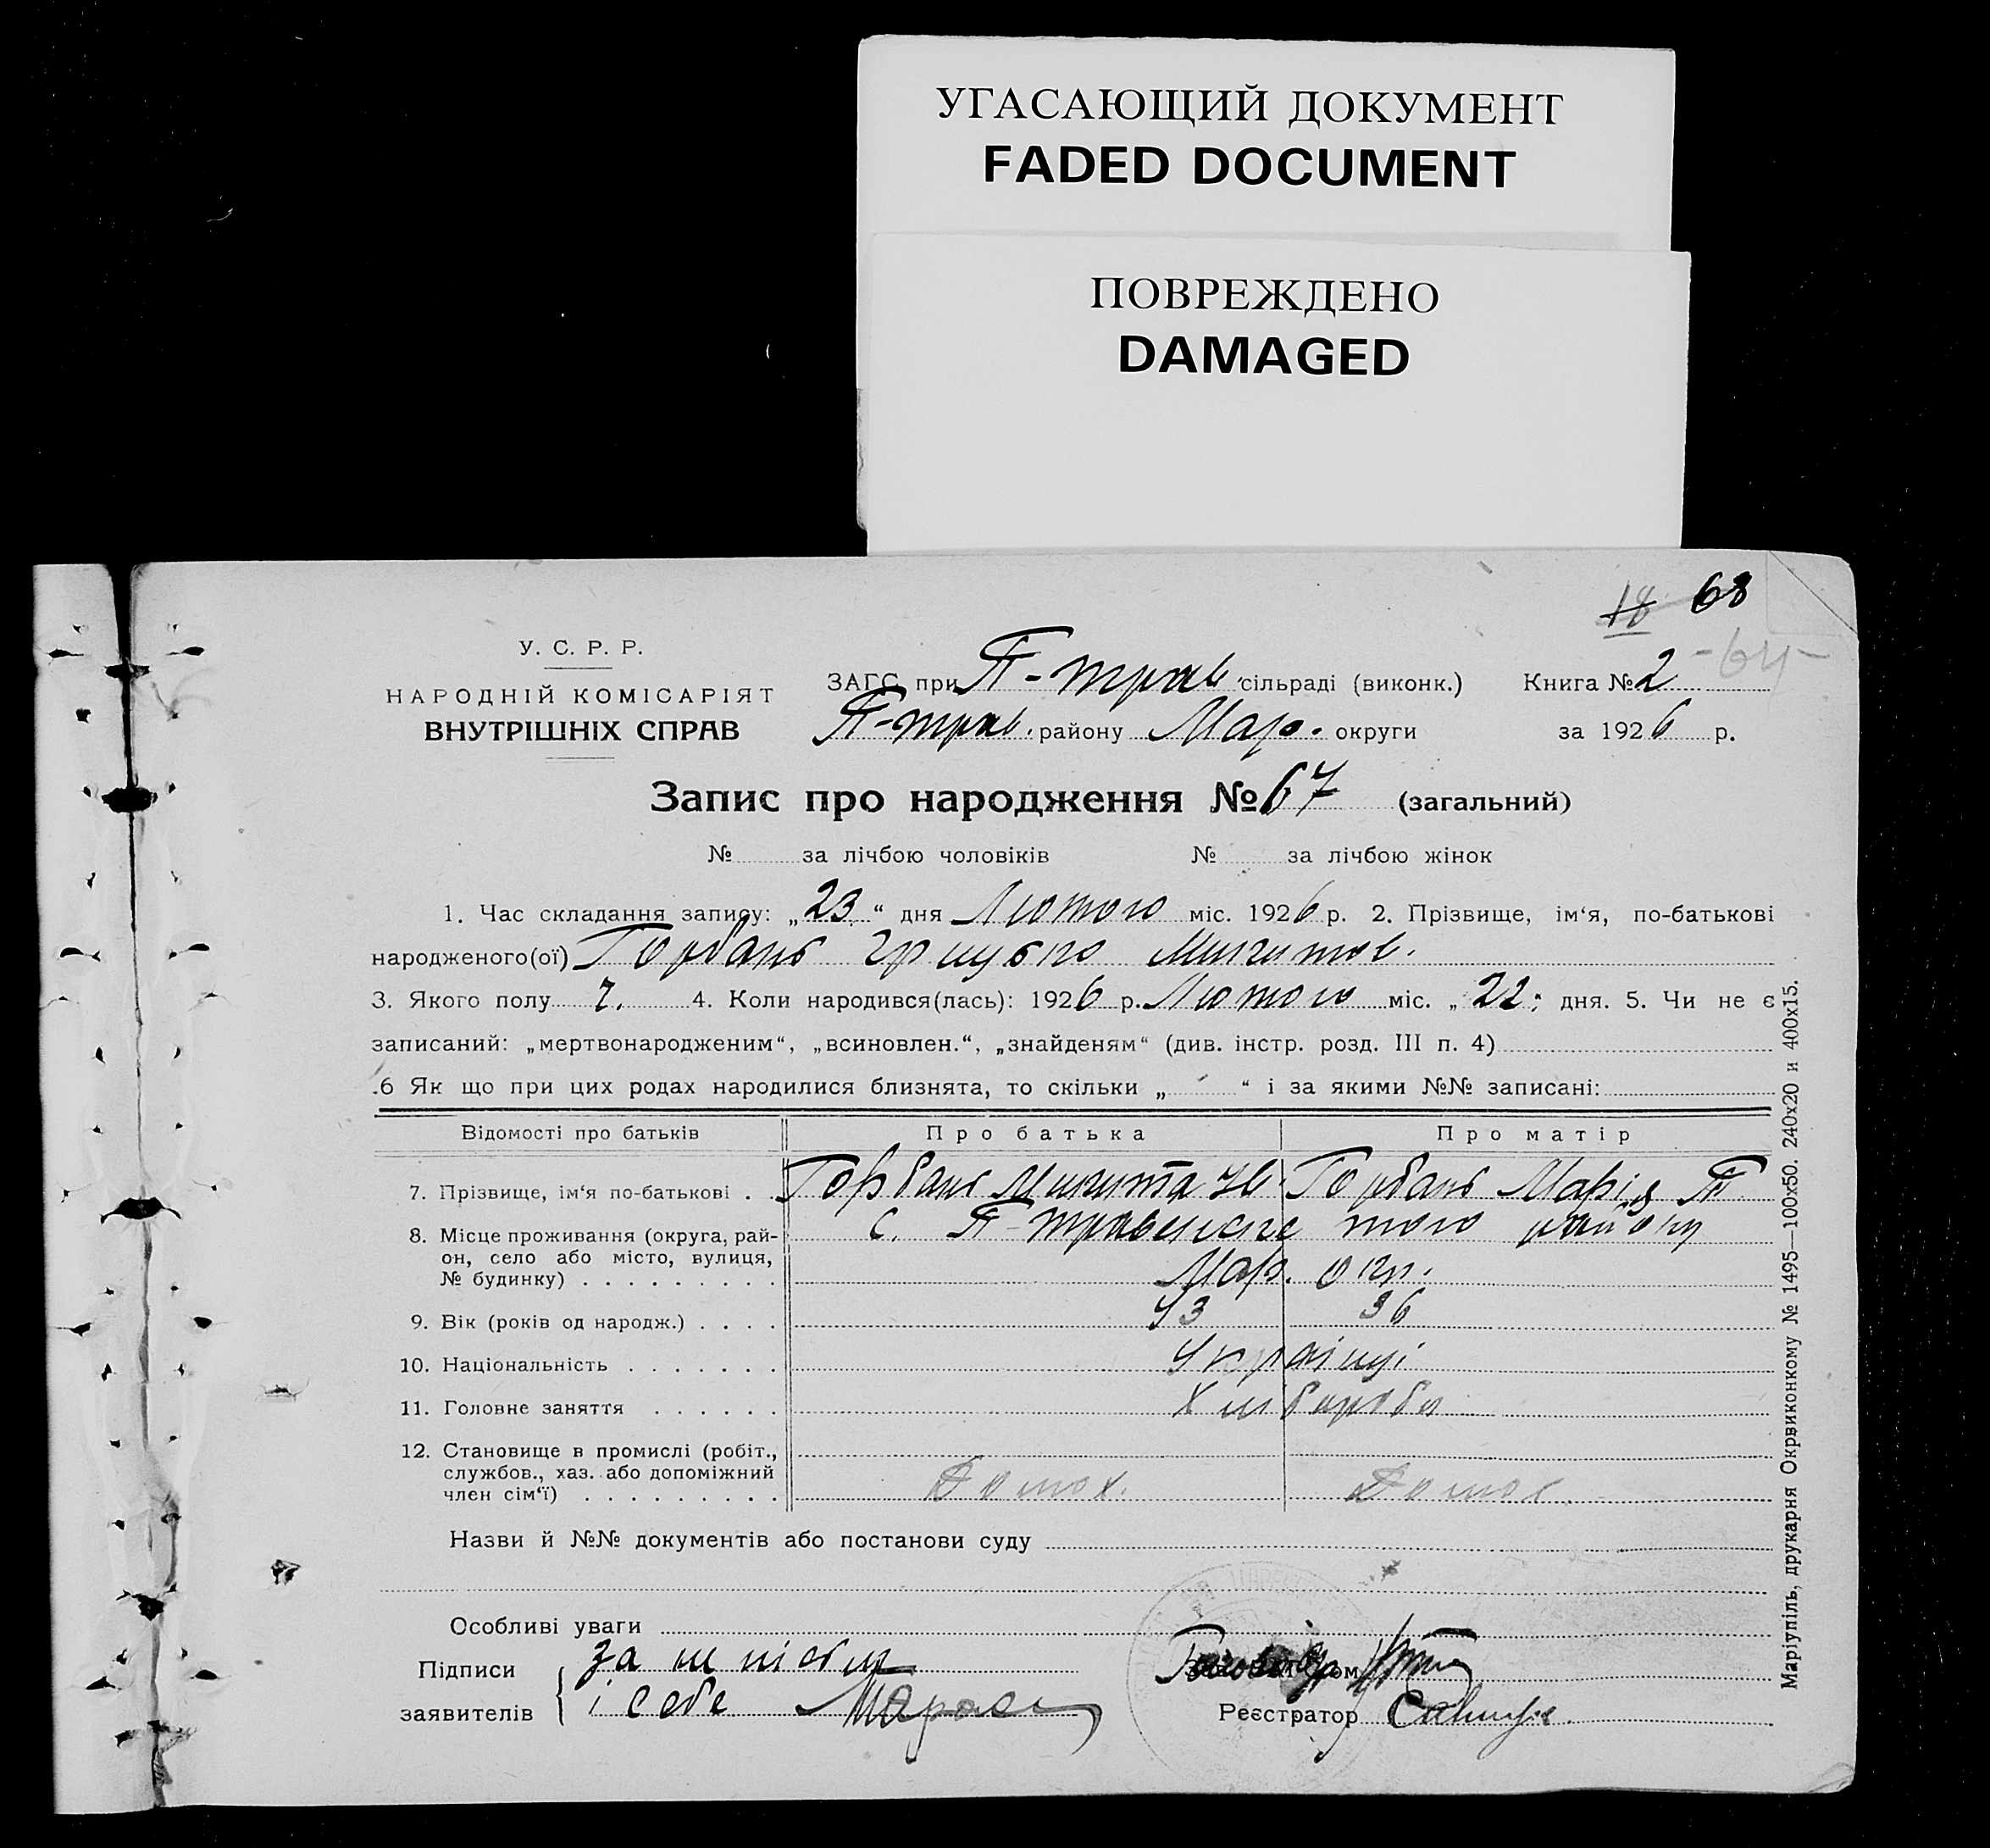 УГАСАЮЩИЙ ДОКУМЕНТ
FADED DOCUMENT
ПОВРЕЖДЕНО
DAMAGED
18 68
-64-
У. С. Р. Р.
НАРОДНІЙ КОМІСАРІЯТ
ВНУТРІШНІХ СПРАВ
ЗАГС при П-трав. сільраді (виконк.) Книга № 2
П-трав. району Мар. округи за 1926 р.
Запис про народження № 67 (загальний)
№ за лічбою чоловіків № за лічбою жінок
1. Час складання запису: „23“ дня Лютого міс. 1926 р. 2. Прізвище, ім‘я, по-батькові
народженого(ої) Горбань Грицько Микитов.
3. Якого полу ч. 4. Коли народився(лась): 1926 р. Лютого міс. „22“ дня. 5. Чи не є
записаний: „мертвонародженим“, „всиновлен.“, „знайденям“ (див. інстр. розд. III п. 4)
.6 Як що при цих родах народилися близнята, то скільки „ “ і за якими №№ записані:
Відомості про батьків Про батька Про матір
7. Прізвище, ім‘я по-батькові . . Горбань Микита Ів. Горбань Марія П
8. Місце проживання (округа, рай- с. П-травенське того району
он, село або місто, вулиця,
№ будинку) . . . . . . . . . Мар. окр.
9. Вік (років од народж.) . . . . 43 36
10. Національність . . . . . . . Українці
11. Головне заняття . . . . . . Хлібороби
12. Становище в промислі (робіт.,
службов., хаз. або допоміжний
член сім‘ї) . . . . . . . . . Домох. Домог.
Назви й №№ документів або постанови суду
Особливі уваги
Підписи за
заявителів і себе
Реєстратор
Маріупіль, друкарня Окрвиконкому № 1495—100х50. 240х20 и 400х15.